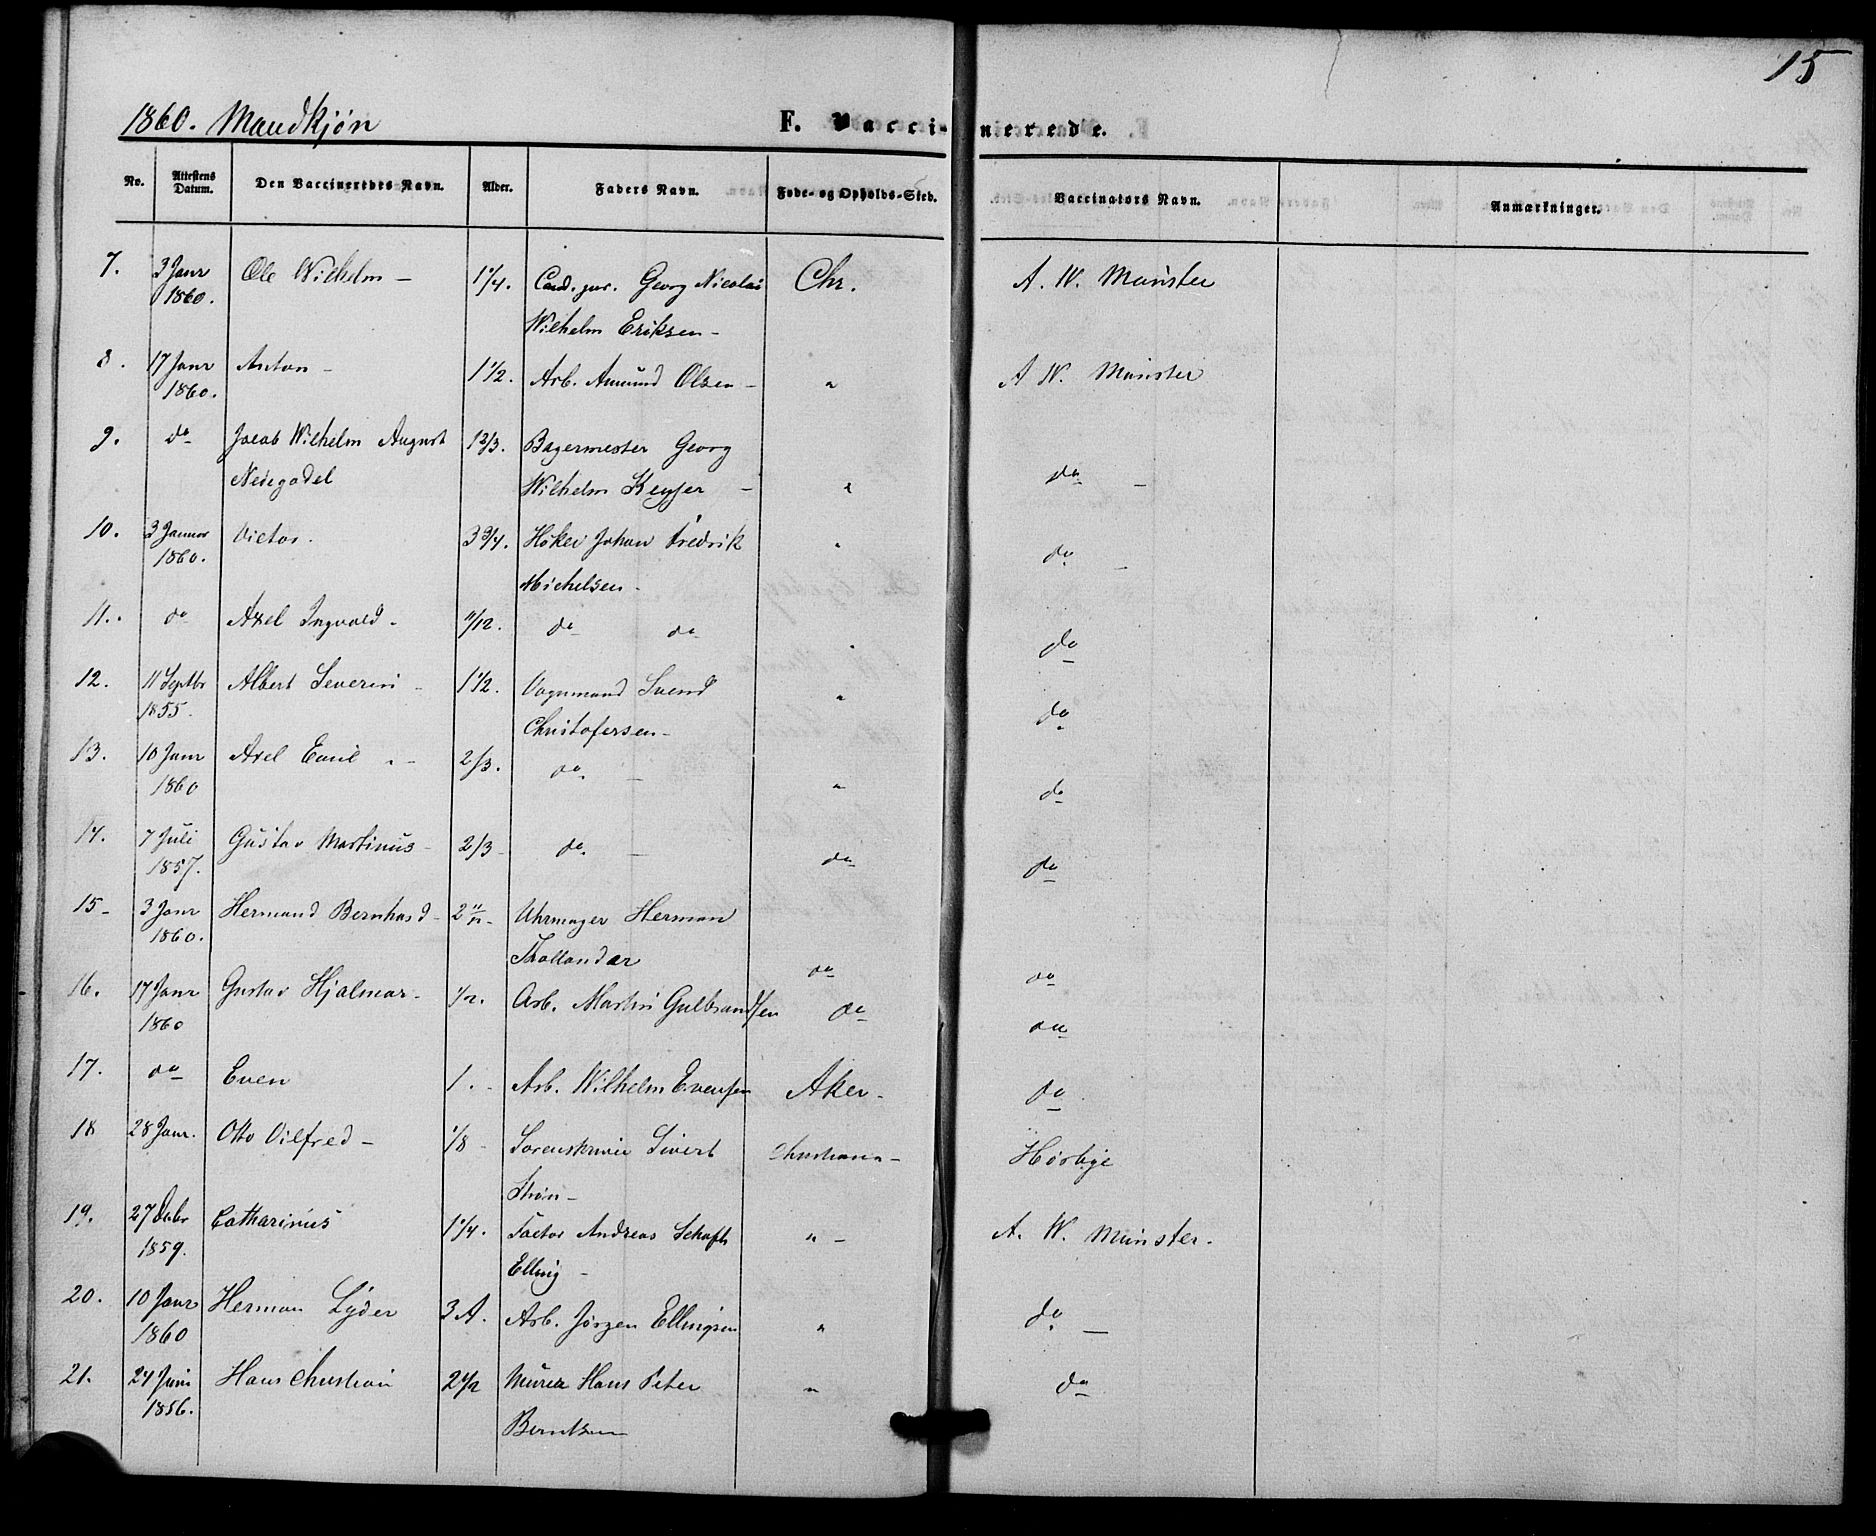 15
1860. Mandkjøn F. Vaccinerede.
No. Attestens Datum. Den Vaccineredes Navn. Alder. Faders Navn. Føde- og Opholds-Sted. Vaccinators Navn. Anmærkninger.
7. 3 Janr Ole Wilhelm - 1 1/4. Cand. jur. Georg Nicolai Chr. A. W. Münster
1860. Wilhelm Eriksen -
8. 17 Janr Anton - 1 1/2. Arb. Amund Olsen - " A W. Münster
1860.
9. do Jacob Wilhelm August 1 2/3. Bagermester Georg
Wilhelm Keyser - " do -
10. 3 Januar Victor. 3 3/4. Høker Johan Fredrik " do -
1860. Michelsen -
11. do Axel Ingvald. 11/12. do do " do
12. 11 Septbr Albert Severin - 1 1/2. Vognmand Svend " do
1855. Christofersen -
13. 10 Janr Axel Emil - 2/3. do - " do
1860
14. 7 Juli Gustav Martinus - 2/3 do - do do
1857.
15 - 3 Janr Hermand Bernhard - 2 11/12 - Uhrmager Herman
1860. Thollander do do
16. 17 Janr Gustav Hjalmar - 1/2. Arb. Martin Gulbrandsen do do
1860
17. do Even 1. - Arb. Wilhelm Evensen Aker - do
18 28 Janr. Otto Vilfred - 1/8 - Sorenskriver Sivert Christiania - Hørbye
19. 27 Debr Catharinus 1 1/4. Factor Andreas " - A. W. Münster.
1859. Elling -
20. 10 Janr Herman Lyder 3 A. Arb. Jørgen Ellingsen " do -
1860
21. 24 Juni Hans Christian 2 1/2 Murer Hans Peter " do
1856. Berntsen